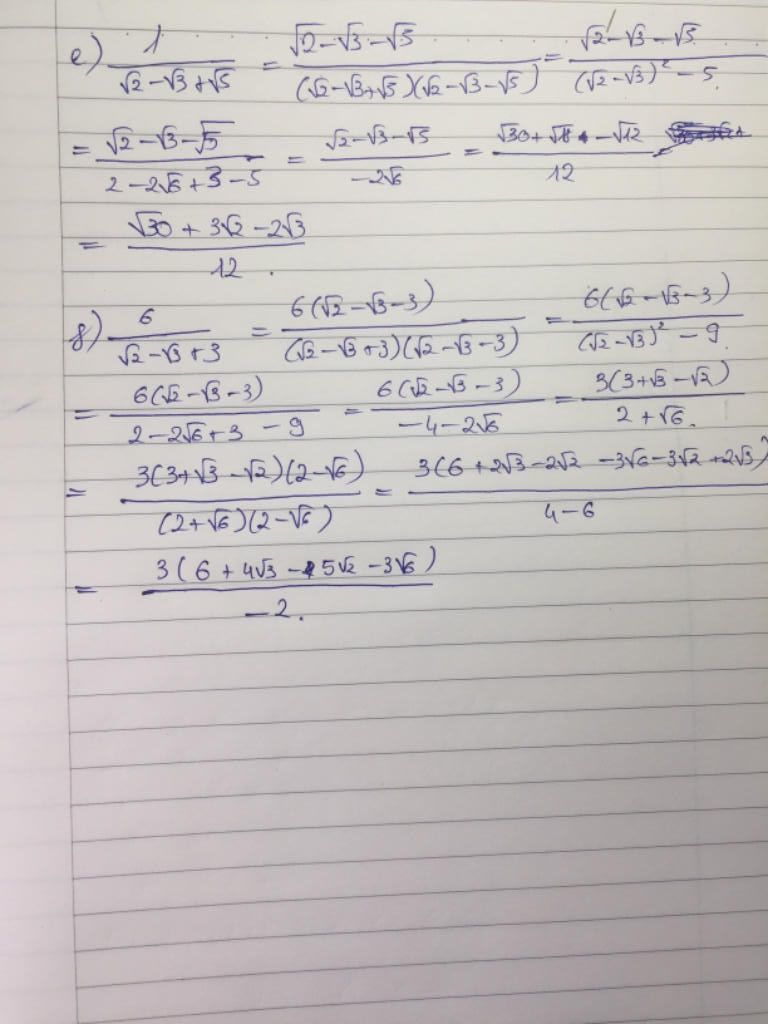 e) 1/(√2-√3+√5) = (√2-√3-√5)/((√2-√3+√5)(√2-√3-√5)) = (√2-√3-√5)/((√2-√3)² - 5.)
= (√2-√3-√5)/(2-2√6+3-5) = (√2-√3-√5)/(-2√6) = (√30+√18-√12)/12 =
= (√30+3√2-2√3)/12.
f) 6/(√2-√3+3) = 6(√2-√3-3)/((√2-√3+3)(√2-√3-3)) = 6(√2-√3-3)/((√2-√3)² - 9.)
= 6(√2-√3-3)/(2-2√6+3-9) = 6(√2-√3-3)/(-4-2√6) = 3(3+√3-√2)/(2+√6.)
= 3(3+√3-√2)(2-√6)/((2+√6)(2-√6)) = 3(6+2√3-2√2-3√6-3√2+2√3)/(4-6)
= 3(6+4√3-5√2-3√6)/(-2.)